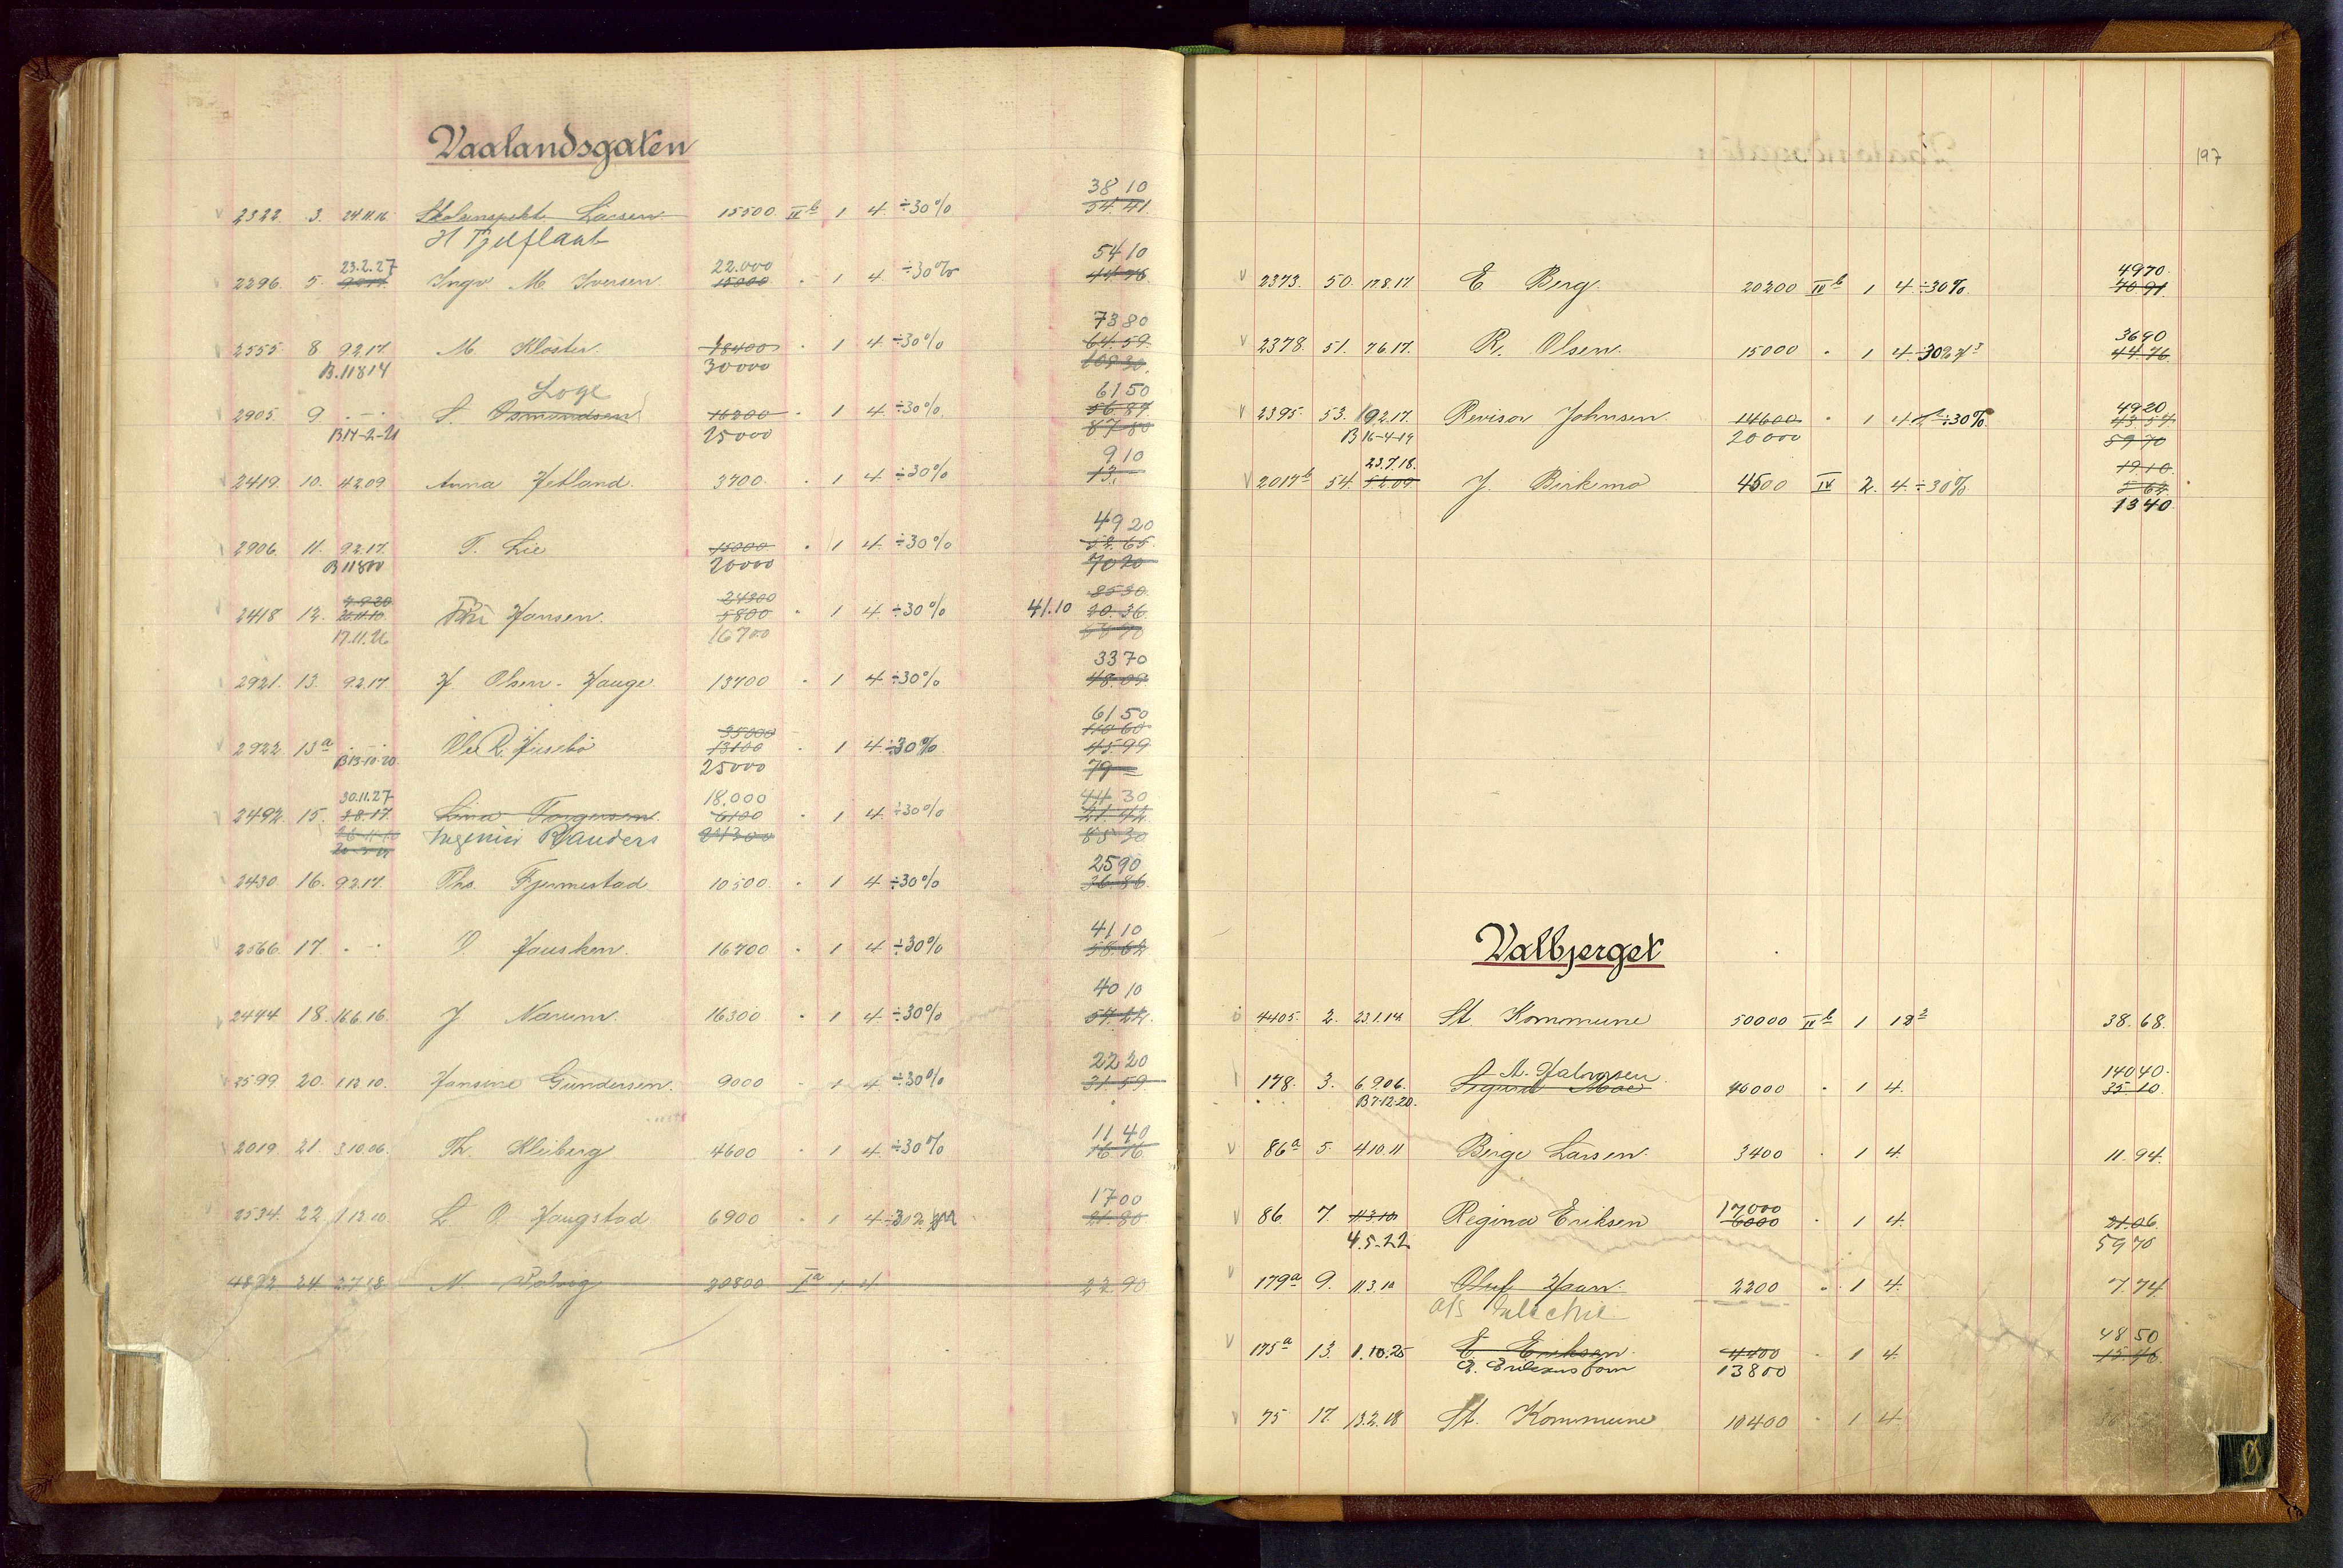 Vaalandsgaten
38 10
2322. 3. 24 11 16 Skoleinspekt. Larsen 15500. IV b 1 4 ÷30% 54.41.
H Tjelflaat
23.2.27 22.000 54 10
2296. 5. Ingv. M. Iversen 15000 . 1 4 ÷30% 44.76
73 80
2555. 8 9.2.17. M. Kloster. 18400 . 1 4 ÷30% 64.59
B.11814 30000 108 30.
Loge 61 50
2905. 9 . — . S. Osmundsen 16200 . 1 4 ÷30% 56.87
B14-2-21 25000 87 80
9 10
2419. 10. 4.2.09 Anna Hetland. 3700. . 1 4 ÷30% 13.—
49 20
2906. 11. 9.2.17. T. Lie 15000 . 1 4. ÷30% 52.65.
B11800 20000 70 20
7.9.20 24300 85 30
2418 12. 21.11.10. Hansen. 5800 . 1 4 ÷30% 41.10 20.36
17.11.26 16700
33 70
2921. 13. 9.2.17 H. Olsen-Hauge 13700 . 1 4 ÷30% 48.09
61 50
35000 110 60
2922. 13a . — . Ole R. Husebø 13100 . 1 4.÷30%. 45.99
B13-10-20. 25000 79 —
30.11.27 18.000 44 30
2492. 15. 1.8.17. Lina Torgersen. 6100 . 1 4 ÷30% 21.42
Ingeniør Randers 24300 85 30
25 90
2430. 16. 9.2.17. Ths. Fjermestad 10500. . 1 4 ÷30% 36.86
41 10
2566. 17. . — . O. Hausken. 16700 . 1 4 ÷30% 58.62
40 10
2444 18. 16.6.16. J. Narum. 16300 . 1 4 ÷30% 57.22.
22 20
2599. 20. 1.12.10. Hansine Gundersen. 9000 . 1 4 ÷30% 31.59
11 40
2019. 21. 3.10.06. Th. Kleiberg 4600 . 1 4 ÷30% 16.16
17 00
2534. 22. 1.12.10 L. O. Haugstad 6900 . 1 4 ÷30% 21.80
4822 24. 2.7.18 N. 20800 I a 1 4 22 90
197
49 70.
2373. 50. 17.8.17. E. Berg. 20200 IV b 1 4 ÷30%. 70 91.
36 90
2378. 51. 7.6.17. R. Olsen. 15000 . 1 4 ÷30% 44 76
49 20
2395. 53. 19.2.17. Revisor Johnsen. 14600 . 1 4 ÷30% 43.57
B16-4-19 20000 59 70
23.7.18. 19 10.
2017b 54. 5.2.09. J. Birkemo 4500 IV 2. 4. ÷30%
13 40.
Valbjerget
4405. 2. 23.1.14. St. Kommune 50000 IV b 1 12 2 38.68.
A. Halvorsen 140 40.
178. 3. 6.9.06. Sigurd Moe 40000 . 1 4. 35 10.
B7-12-20.
86a 5. 4.10.11 Berge Larsen. 3400 . 1 4. 11.94.
17000
86 7. 11.3.10 Regina Eriksen 6000 . 1 4. 21.06
4.5-22 59 70
179a 9. 11.3.10 Oluf Haan. 2200 . 1 4. 7.74
48 50
175a 13. 1.10.25 E. Eriksen. 4400 . 1 4. 15.46
13800
75 17. 13.2.18 St. Kommune 10400 . 1 4.
Ø